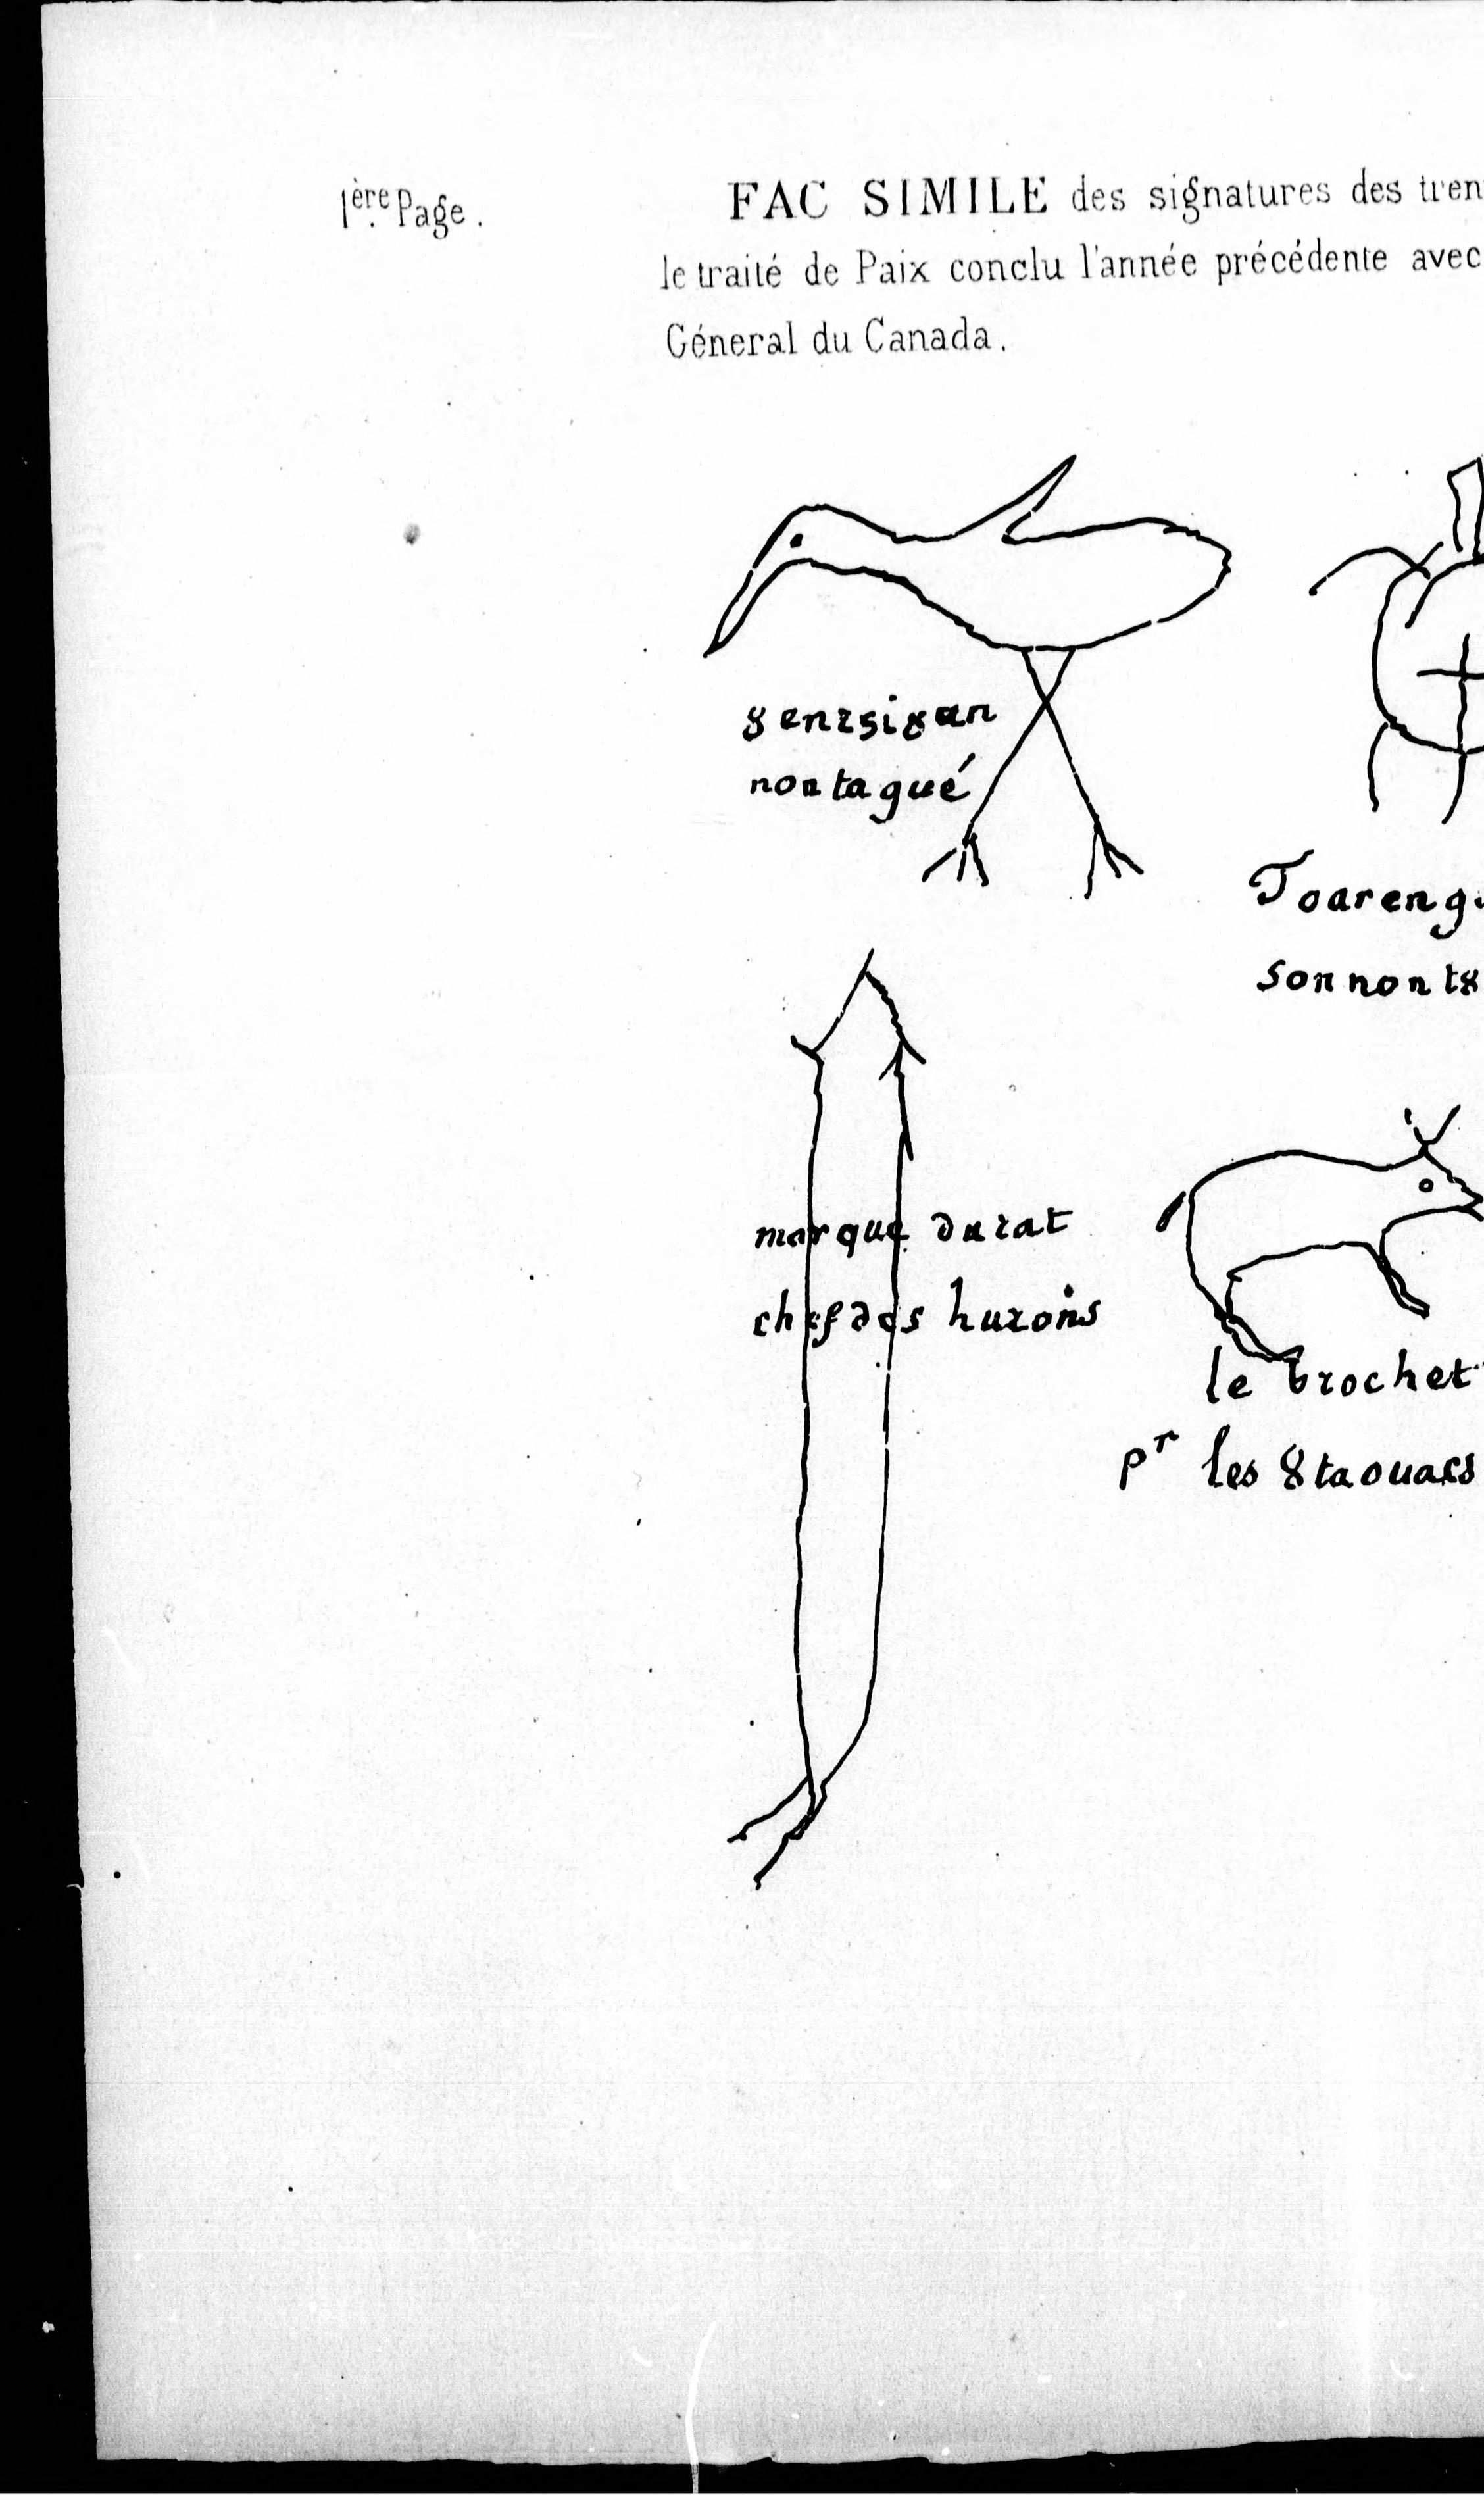 1ère Page.
FAC SIMILE des signatures des tren
le traité de Paix conclu l'année précédente avec
Géneral du Canada.
8entsi8an
nontagué
Toareng
sonnont8
marque du rat
chef des hurons
le brochet
pr les 8taouacs